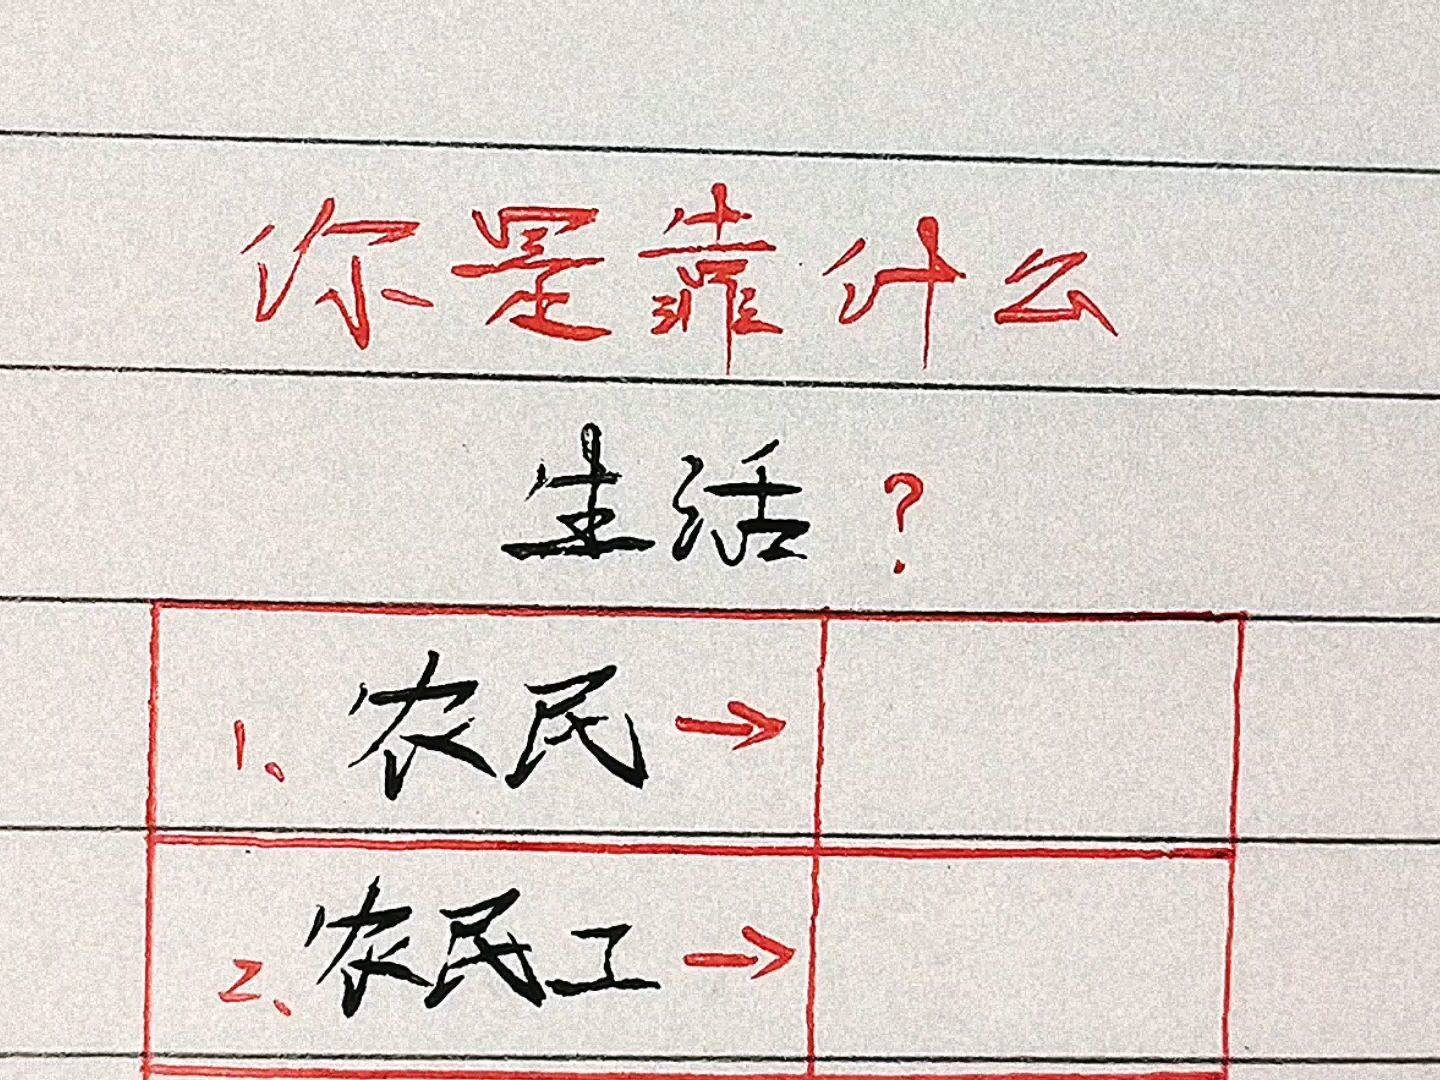 你是靠什么
生活？
1、农民→
2、农民工→